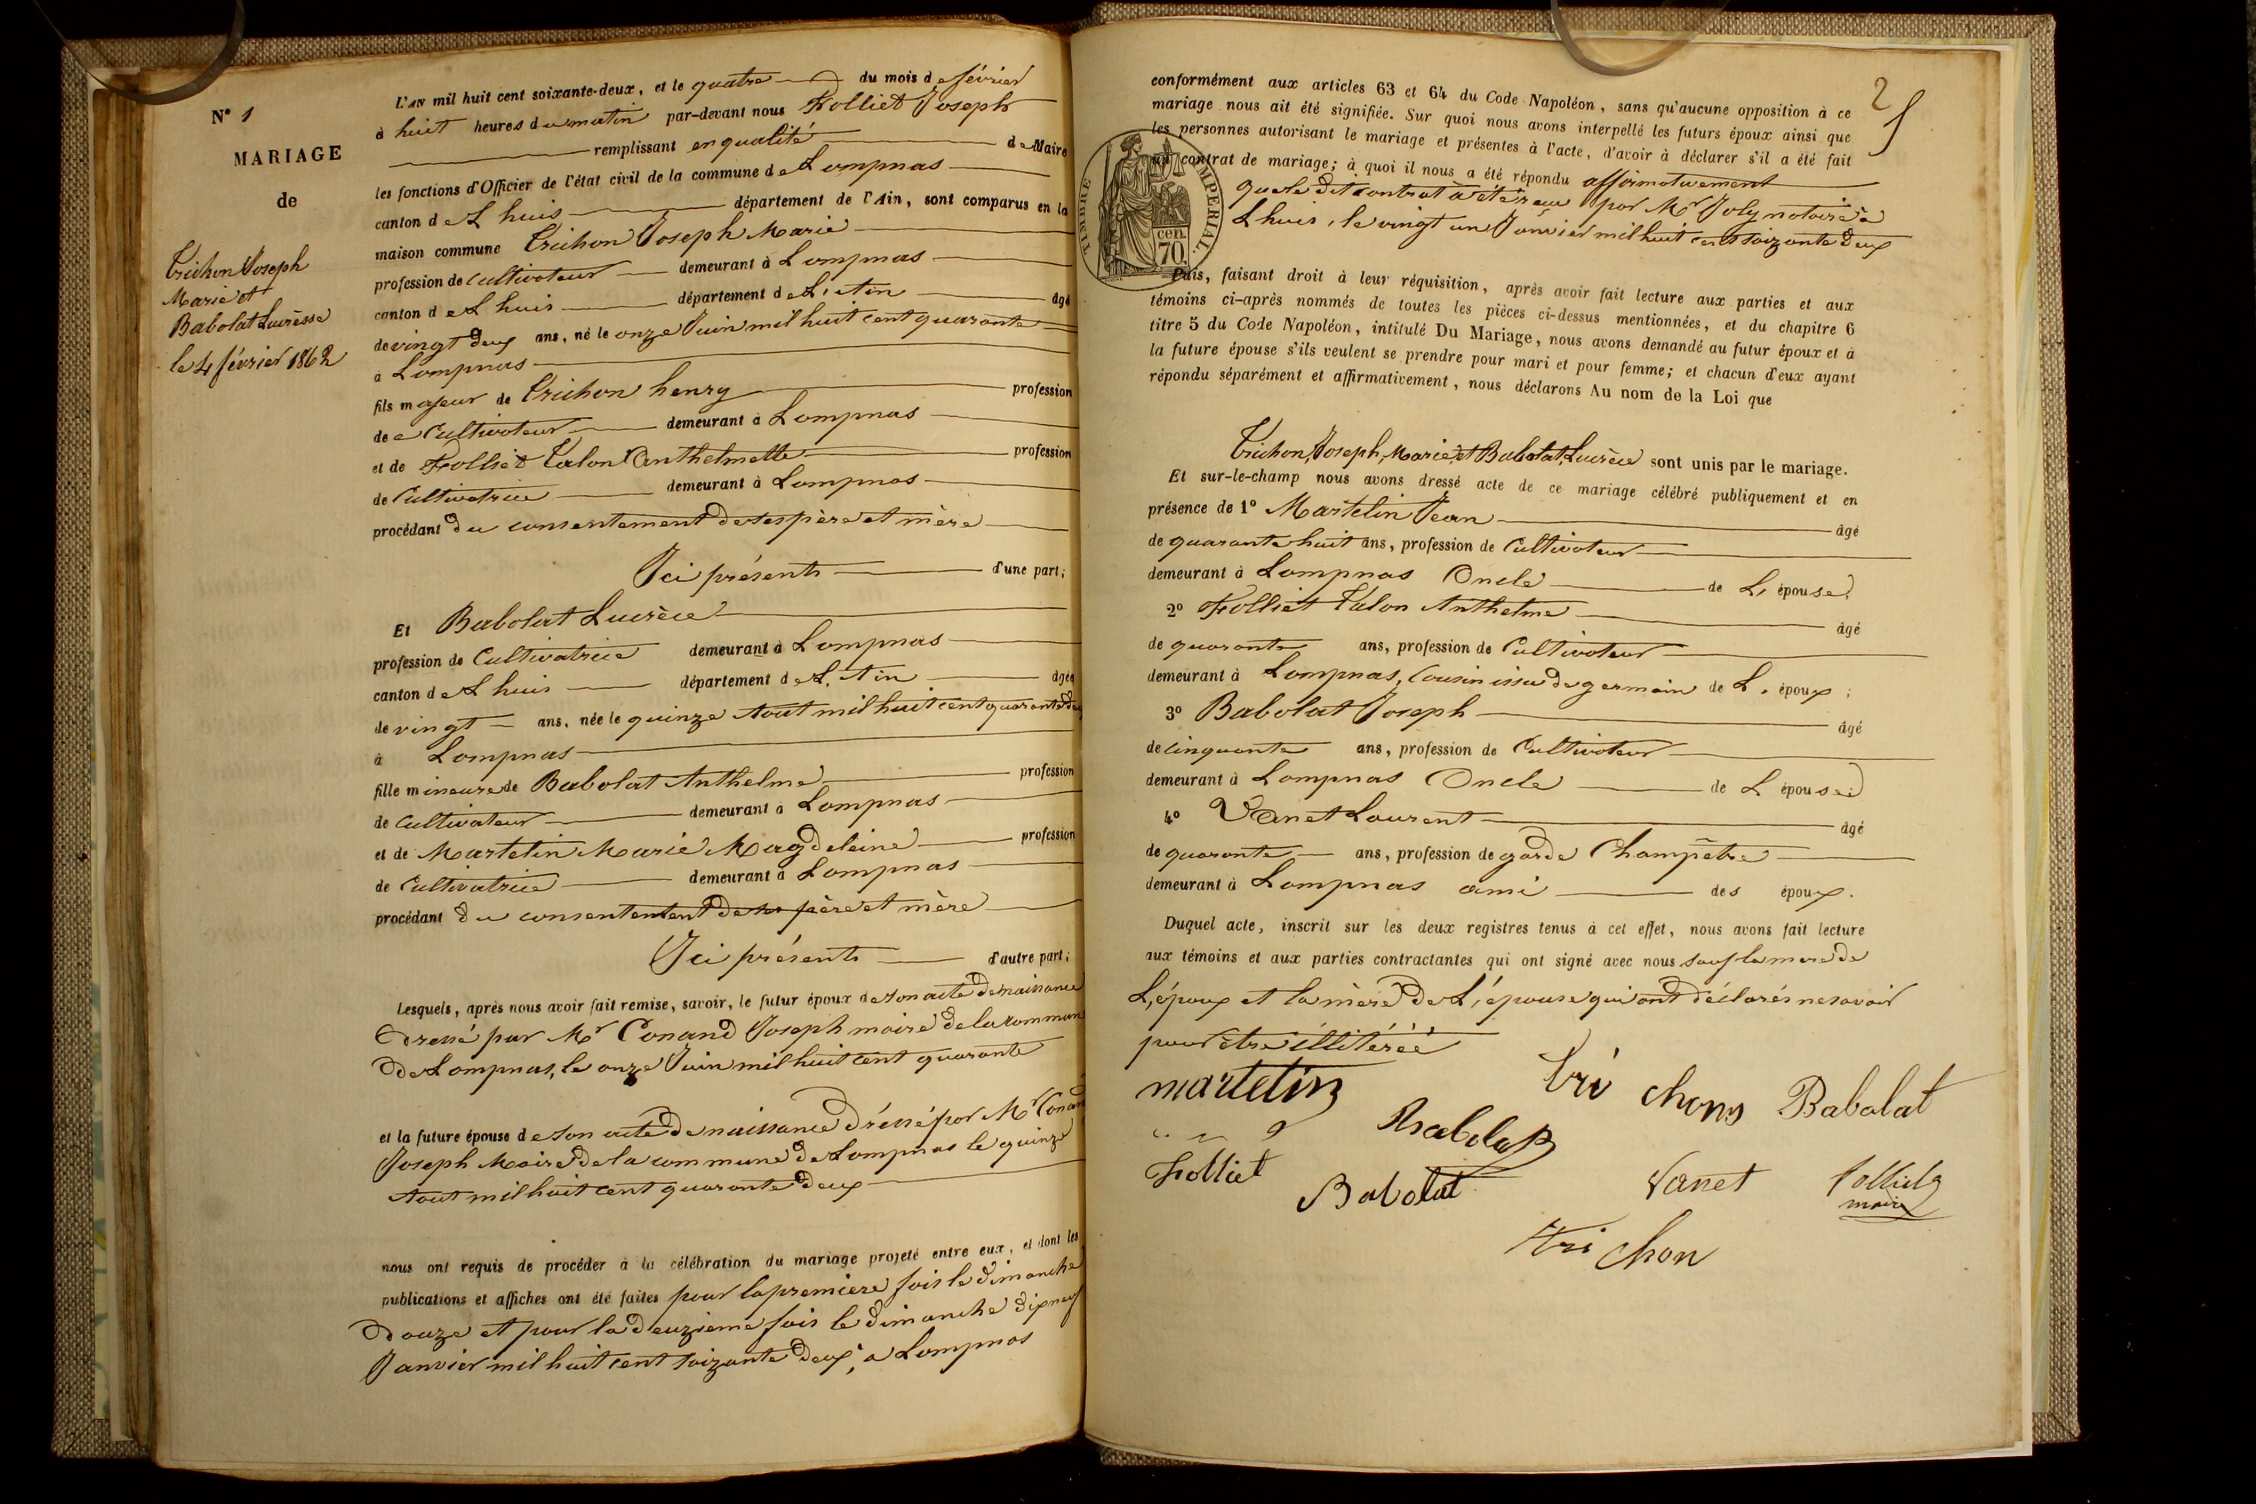 N° 1
MARIAGE
de
Trichon Joseph
Marie et
Babolat Lucrèsse
le 4 février 1862
L'AN mil huit cent soixante-deux, et le quatre du mois de février
à huit heures du matin par-devant nous Folliet Joseph
remplissant en qualité de Maire
les fonctions d'Officier de l'état civil de la commune de Lompnas
canton de Lhuis département de l'Ain, sont comparus en la
maison commune Trichon Joseph Marie
profession de Cultivateur demeurant à Lompnas
canton de Lhuis département de L'Ain âgé
de vingt deux ans, né le onze Juin mil huit cent quarante
à Lompnas
fils majeur de Trichon henry profession
de Cultivateur demeurant à Lompnas
et de Folliet Talon Anthelmette profession
de Cultivatrice demeurant à Lompnas
procédant du consentement de ses père et mère
Ici présents d'une part;
Et Babolat Lucrèce
profession de Cultivatrice demeurant à Lompnas
canton de Lhuis département de L'Ain âgée
de vingt ans, née le quinze Aout mil huit cent quarante deux
à Lompnas
fille mineure de Babolat Anthelme profession
de Cultivateur demeurant à Lompnas
et de Martelin Marie Magdeleine profession
de Cultivatrice demeurant à Lompnas
procédant du consentement de ses père et mère
Ici présents d'autre part;
Lesquels, après nous avoir fait remise, savoir, le futur époux de son acte de naissance
Dressé par Mr Conand Joseph maire de la commune
de Lompnas, le onze Juin mil huit cent quarante
et la future épouse de son acte de naissance dréssé par Mr Conand
Joseph Maire de la commune de Lompnas le quinze
Aout mil huit cent quarante deux
nous ont requis de procéder à la célébration du mariage projeté entre eux, et dont les
publications et affiches ont été faites pour la premiere fois le dimanche
Douze et pour la deuzieme fois le dimanche dix neuf
Janvier mil huit cent soizante deux, a Lompnas
2
conformément aux articles 63 et 64 du Code Napoléon, sans qu'aucune opposition à ce
mariage nous ait été signifiée. Sur quoi nous avons interpellé les futurs époux ainsi que
les personnes autorisant le mariage et présentes à l'acte, d'avoir à déclarer s'il a été fait
un contrat de mariage; à quoi il nous a été répondu affirmativement
que le dit contrat à été reçu par Mr Joly notaire à
Lhuis, le vingt un Janvier mil huit cent soizante deux
TIMBRE IMPERIAL.
70 cen.
Puis, faisant droit à leur réquisition, après avoir fait lecture aux parties et aux
témoins ci-après nommés de toutes les pièces ci-dessus mentionnées, et du chapitre 6
titre 5 du Code Napoléon, intitulé Du Mariage, nous avons demandé au futur époux et à
la future épouse s'ils veulent se prendre pour mari et pour femme; et chacun d'eux ayant
répondu séparément et affirmativement, nous déclarons Au nom de la Loi que
Trichon, Joseph, Marie, et Babolat, Lucrèce sont unis par le mariage.
Et sur-le-champ nous avons dressé acte de ce mariage célébré publiquement et en
présence de 1° Martelin Jean âgé
de quarante huit ans, profession de Cultivateur
demeurant à Lompnas Oncle de L'épouse;
2° Folliet Talon Anthelme âgé
de quarante ans, profession de Cultivateur
demeurant à Lompnas, Cousin issu de germain de L'époux;
3° Babolat Joseph âgé
de cinquante ans, profession de Cultivateur
demeurant à Lompnas Oncle de L'épouse;
4° Vanet Laurent âgé
de quarante ans, profession de garde Champêtre
demeurant à Lompnas ami des époux.
Duquel acte, inscrit sur les deux registres tenus à cet effet, nous avons fait lecture
aux témoins et aux parties contractantes qui ont signé avec nous sauf la mere de
L'époux et la mère de L'épouse qui ont déclarés ne savoir
pour être illitéréé
martelin Tri chon Babolat
Babolat
Folliet Babolat Vanet Folliet
maire
tri chon